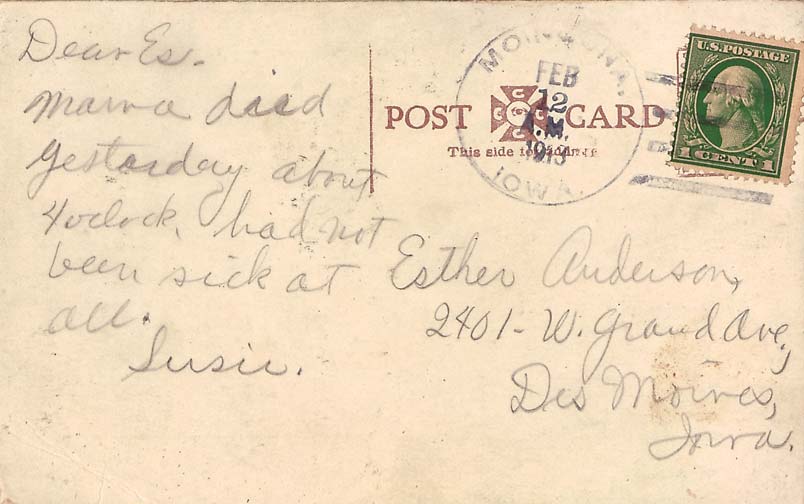 Dear Es.
Mama died
yestarday about
4 oclock. had not
been sick at
all.
Susie.
POST CARD
This side for
MOINGONA,
FEB
12
A.M.
1913
IOWA
U.S. POSTAGE
1 CENT 1
Esther Anderson,
2401 - W. Grand Ave,
Des Moines,
Iowa.